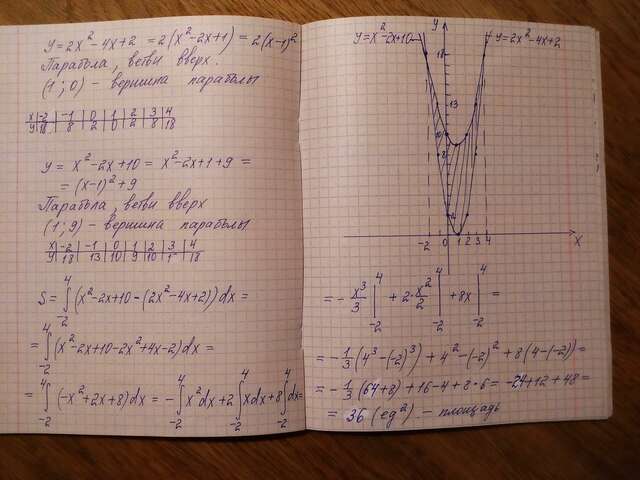 y = 2x² - 4x + 2 = 2(x² - 2x + 1) = 2(x-1)²
Парабола, ветви вверх.
(1; 0) - вершина параболы
x | -2 | -1 | 0 | 1 | 2 | 3 | 4
y | 18 | 8 | 2 | 0 | 2 | 8 | 18
y = x² - 2x + 10 = x² - 2x + 1 + 9 =
= (x-1)² + 9
Парабола, ветви вверх
(1; 9) - вершина параболы
x | -2 | -1 | 0 | 1 | 2 | 3 | 4
y | 18 | 13 | 10 | 9 | 10 | 1 | 18
S = ∫₋₂⁴ (x² - 2x + 10 - (2x² - 4x + 2)) dx =
= ∫₋₂⁴ (x² - 2x + 10 - 2x² + 4x - 2) dx =
= ∫₋₂⁴ (-x² + 2x + 8) dx = -∫₋₂⁴ x² dx + 2∫₋₂⁴ x dx + 8∫₋₂⁴ dx =
y = x² - 2x + 10
y
y = 2x² - 4x + 2
18
13
10
8
2
-2 0 1 2 3 4 x
= - x³/3 |₋₂⁴ + 2·x²/2 |₋₂⁴ + 8x |₋₂⁴ =
= -1/3 (4³ - (-2)³) + 4² - (-2)² + 8(4 - (-2)) =
= -1/3 (64 + 8) + 16 - 4 + 8·6 = -24 + 12 + 48 =
= 36 (ед²) - площадь